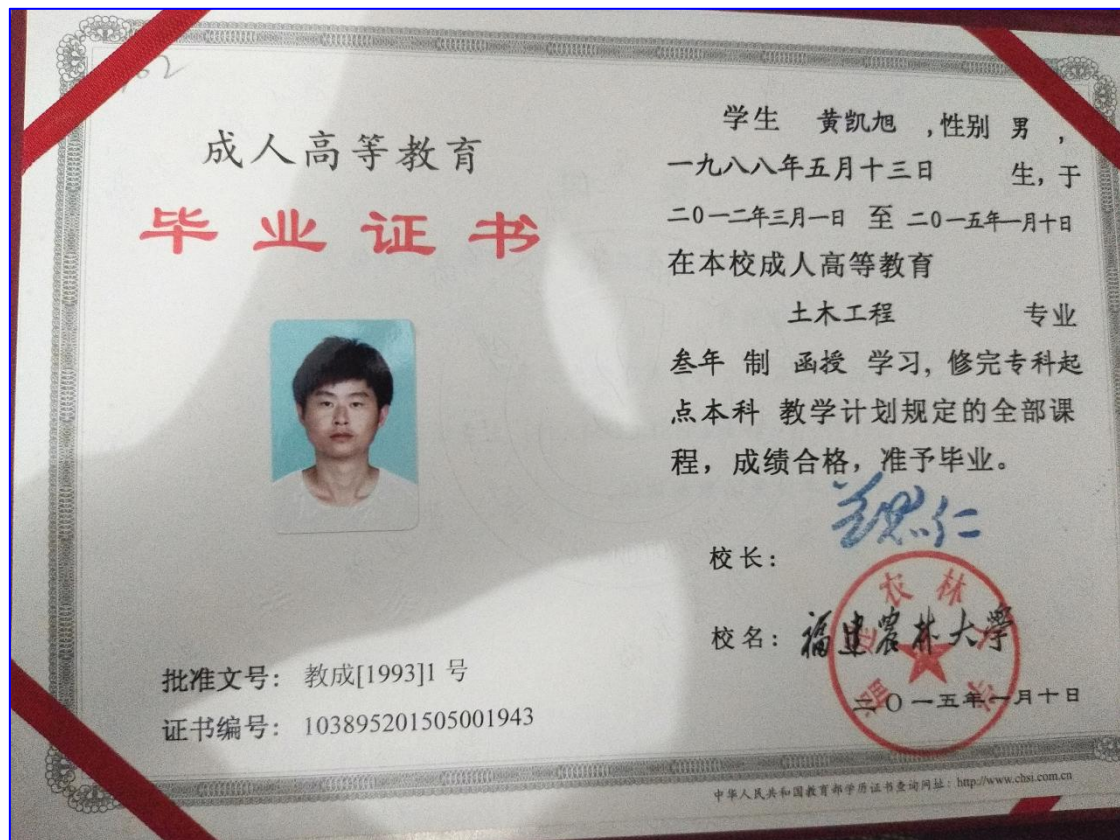 成人高等教育
毕业证书
批准文号: 教成[1993]1 号
证书编号: 103895201505001943
学生 黄凯旭 ,性别 男 ,
一九八八年五月十三日 生, 于
二0一二年三月一日 至 二0一五年一月十日
在本校成人高等教育
土木工程 专业
叁年 制 函授 学习, 修完专科起
点本科 教学计划规定的全部课
程, 成绩合格, 准予毕业。
校长:
校名: 福建农林大学
二0一五年一月十日
中华人民共和国教育部学历证书查询网址: http://www.chsi.com.cn